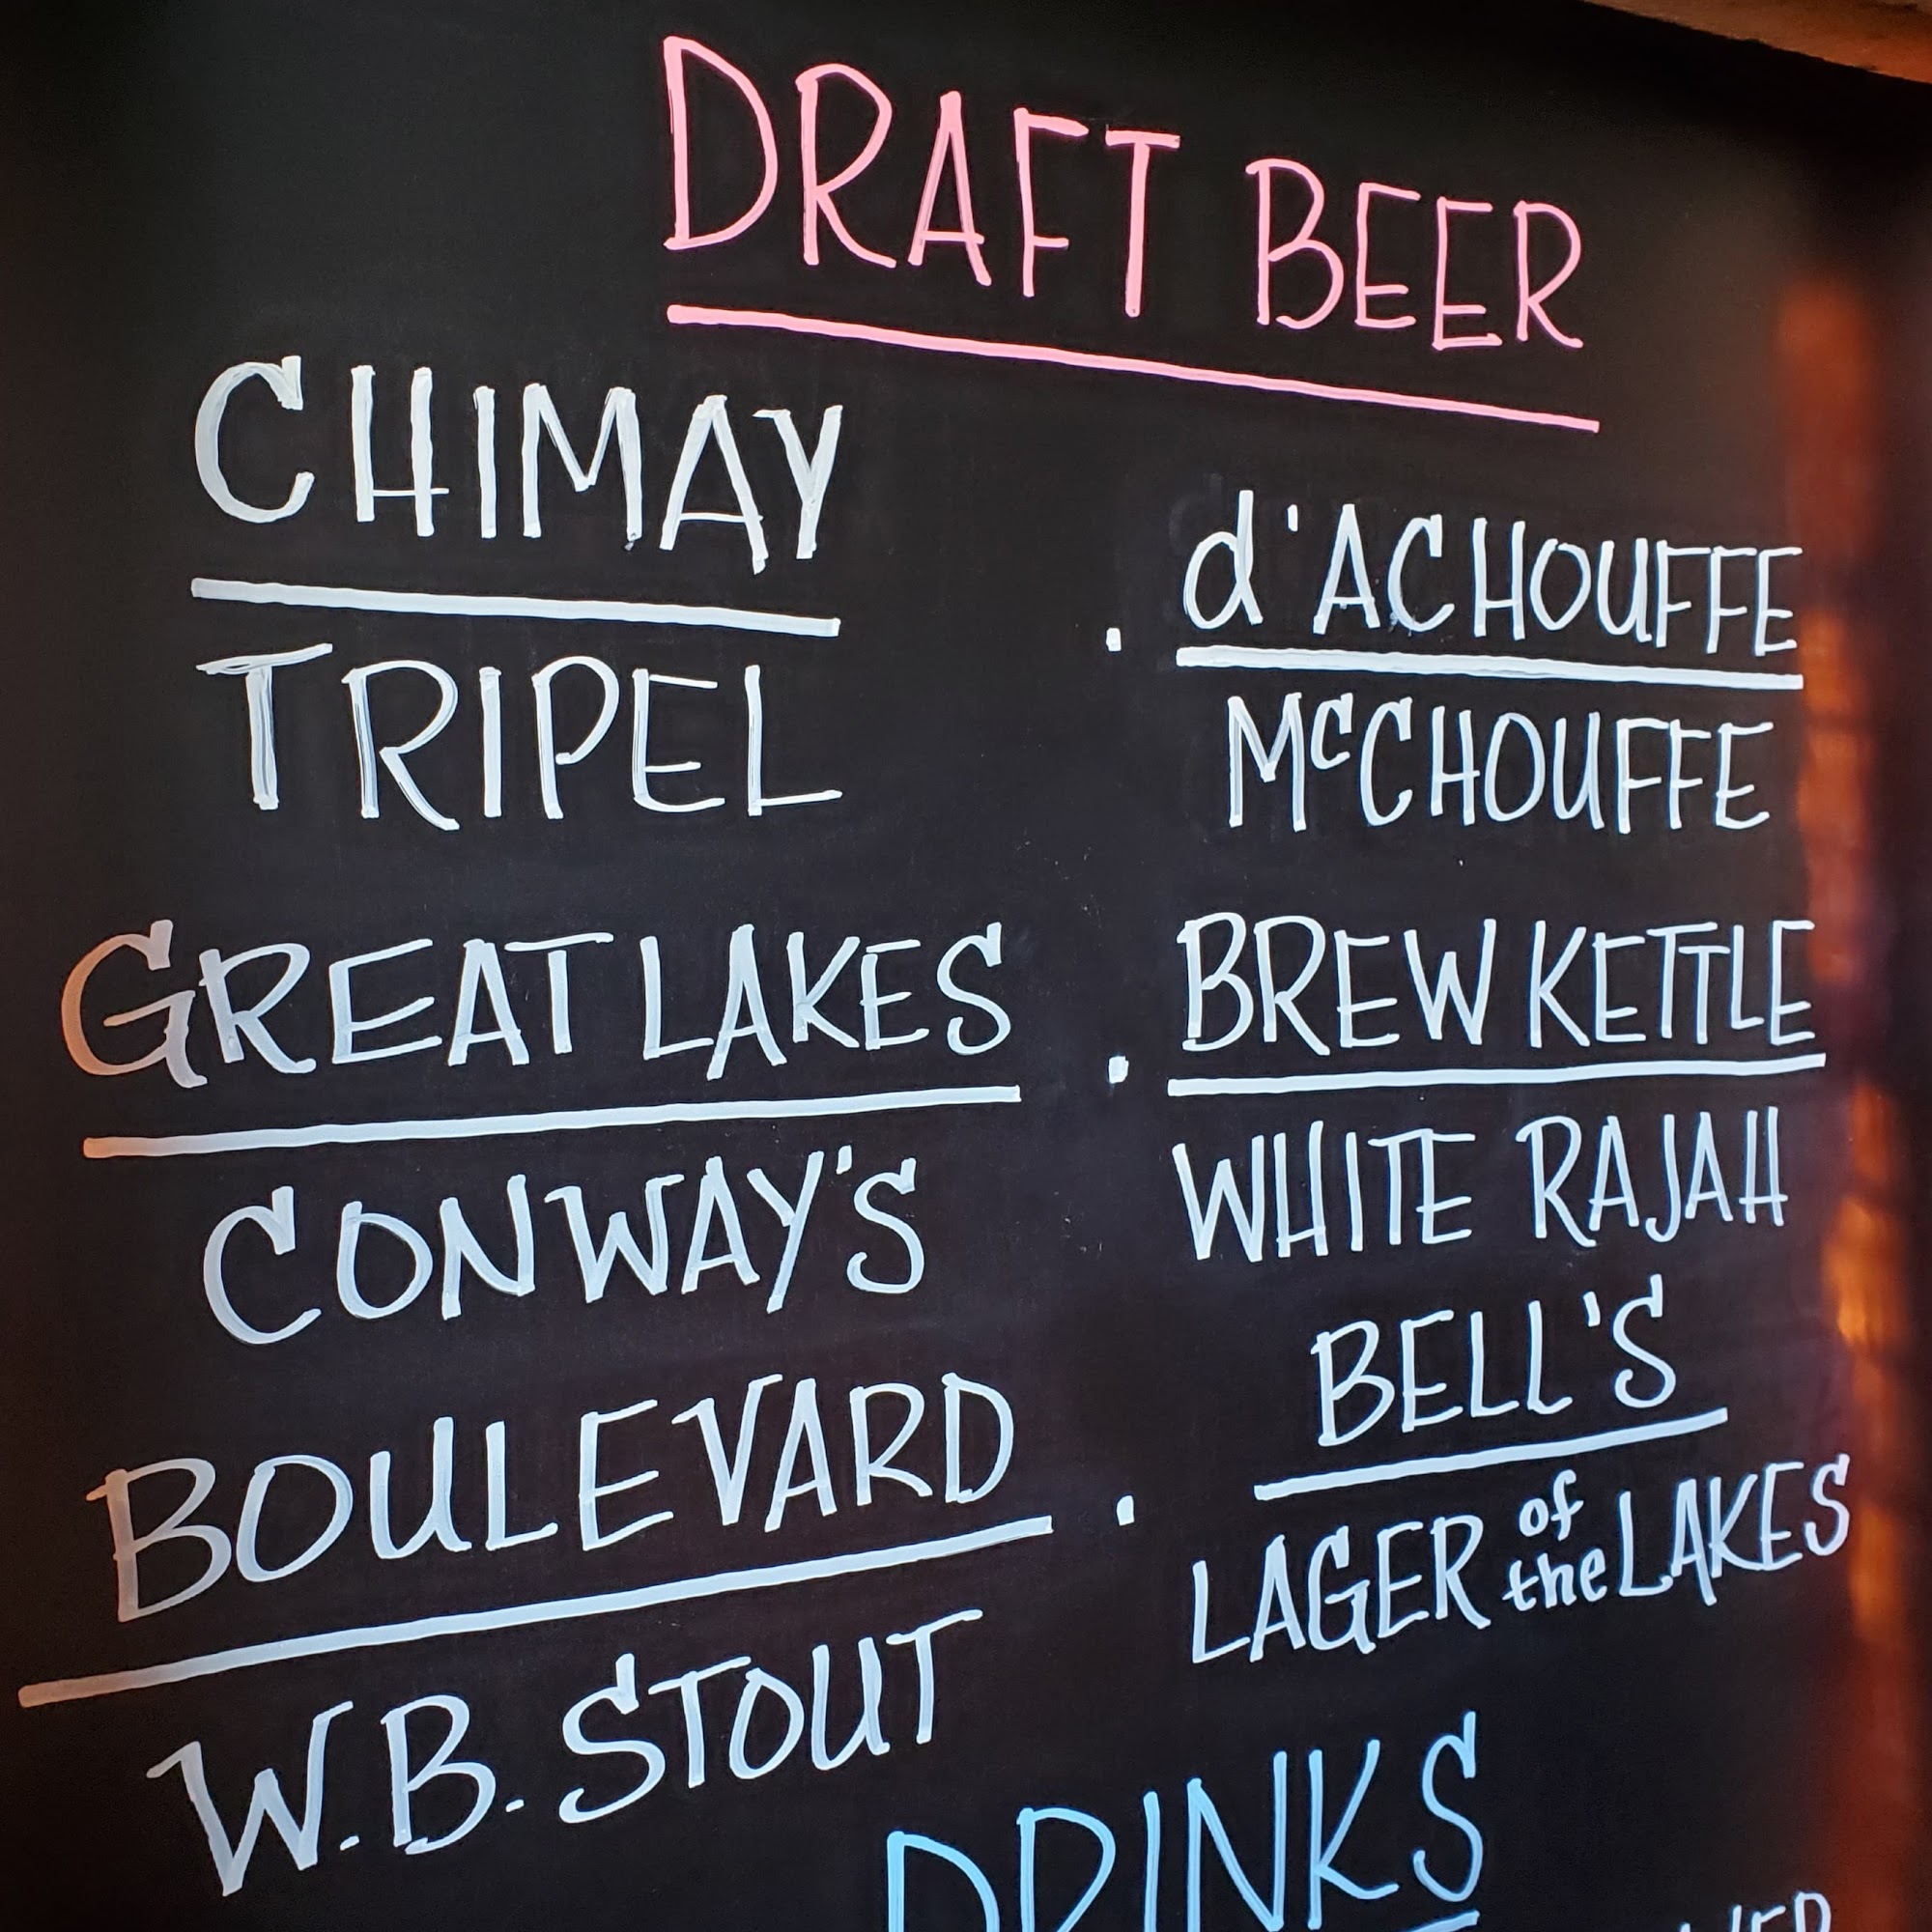 DRAFT BEER
CHIMAY
TRIPEL
d'ACHOUFFE
McCHOUFFE
GREAT LAKES
CONWAY'S
BREW KETTLE
WHITE RAJAH
BOULEVARD
W.B. STOUT
BELL'S
LAGER of the LAKES
DRINKS